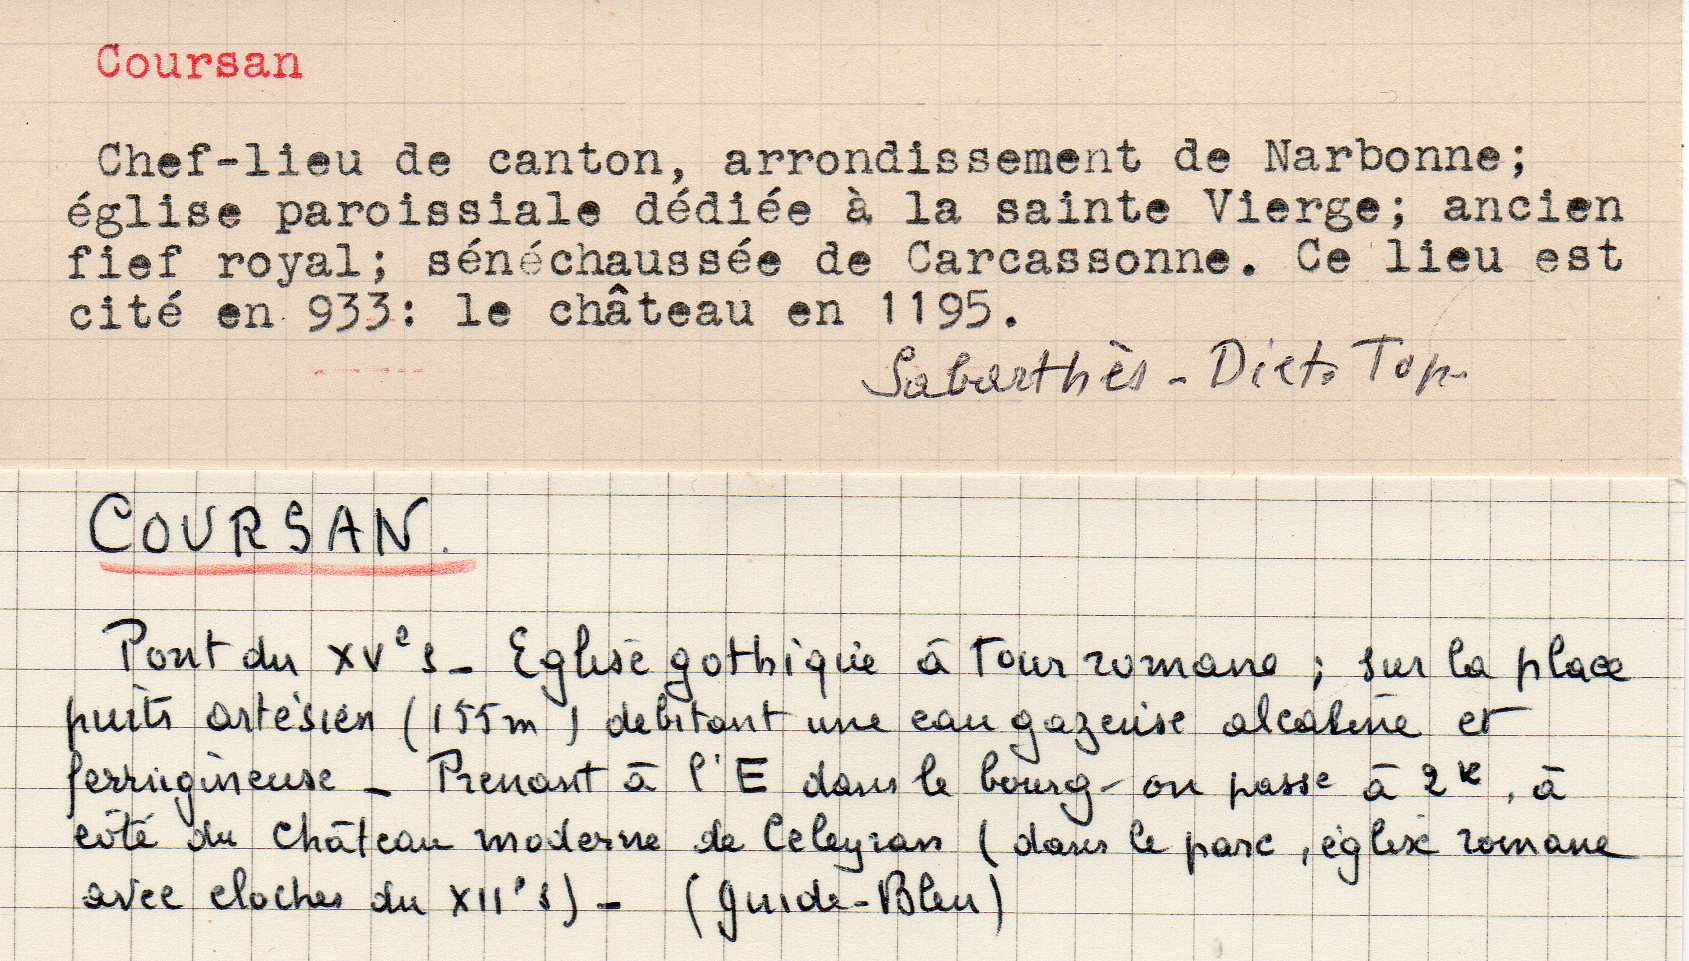 Coursan
Chef-lieu de canton, arrondissement de Narbonne;
église paroissiale dédiée à la sainte Vierge; ancien
fief royal; sénéchaussée de Carcassonne. Ce lieu est
cité en 933: le château en 1195.
Sabarthès - Dict. Top.
COURSAN.
Pont du XVe s - Eglise gothique à Tour romane ; sur la place
puits artésien (155m) debitant une eau gazeuse alcaline et
ferrugineuse - Prenant à l'E dans le bourg - on passe à 2k, à
côté du château moderne de Celeyran (dans le parc, église romane
avec cloches du XIIe s) - (Guide-Bleu)